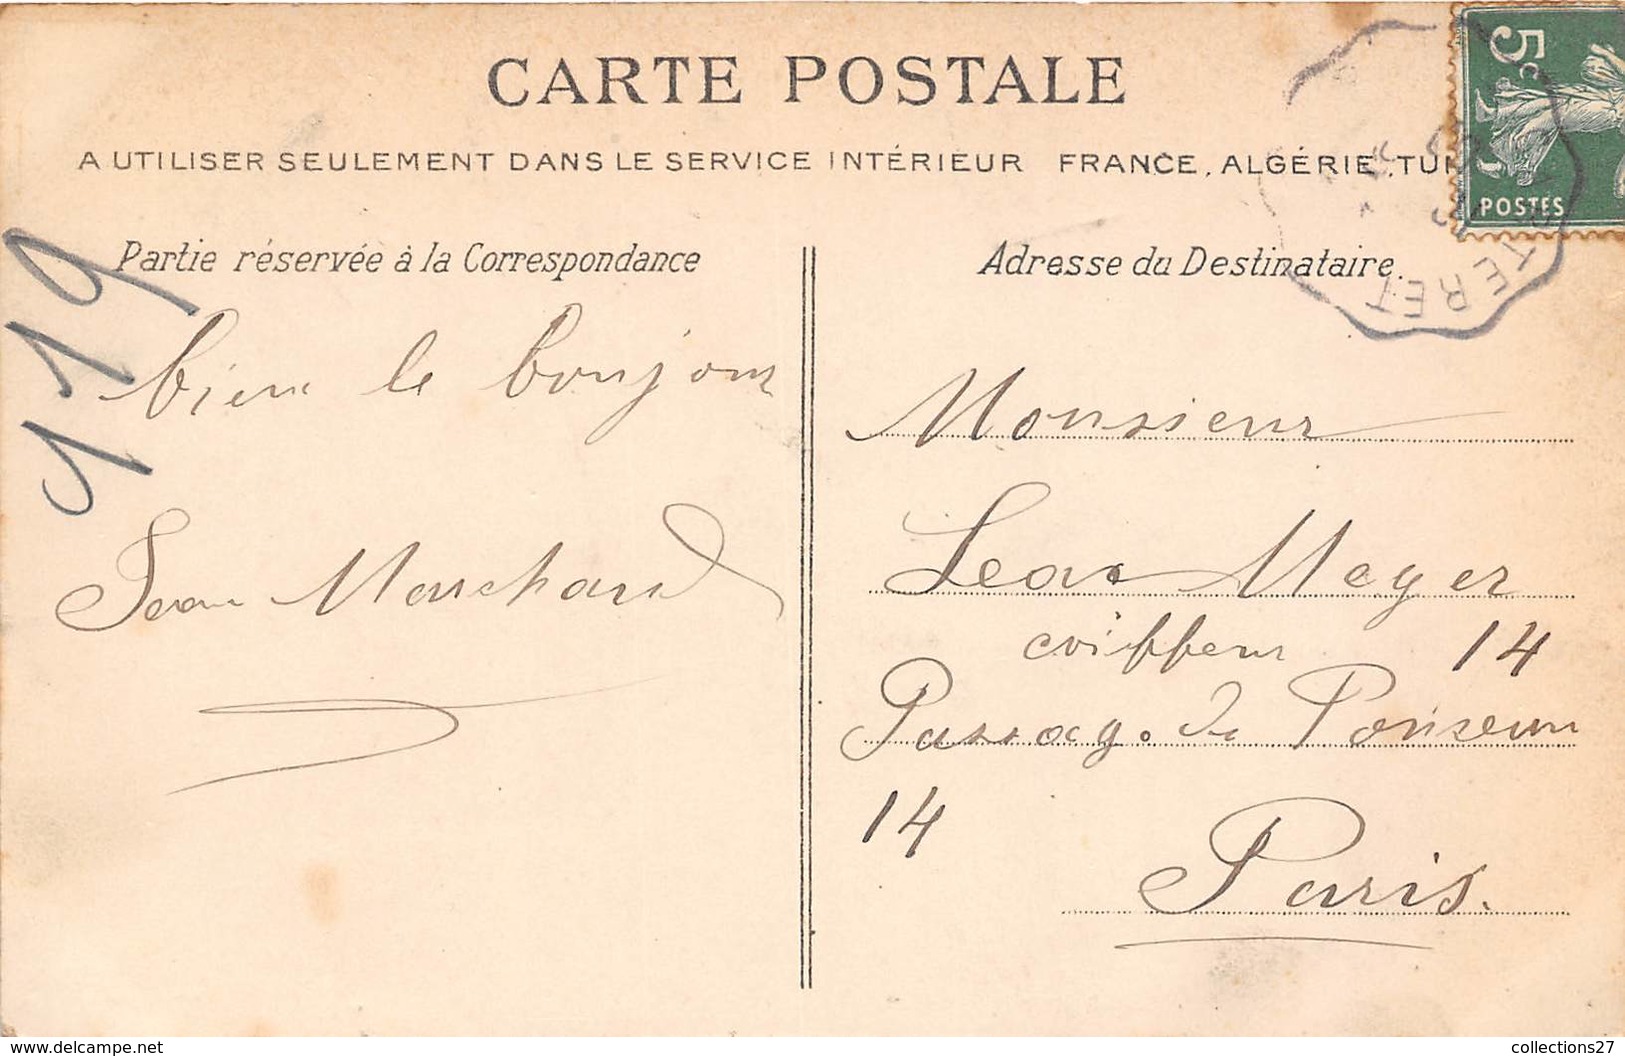 CARTE POSTALE
A UTILISER SEULEMENT DANS LE SERVICE INTÉRIEUR FRANCE, ALGÉRIE, TUN
5c
POSTES
TERET
Partie réservée à la Correspondance
119
bien le bonjour
Jean Marchand
Adresse du Destinataire.
Monsieur
Meyer
coiffeur 14
Passag. de
14
Paris.
delcampe.net
collections27